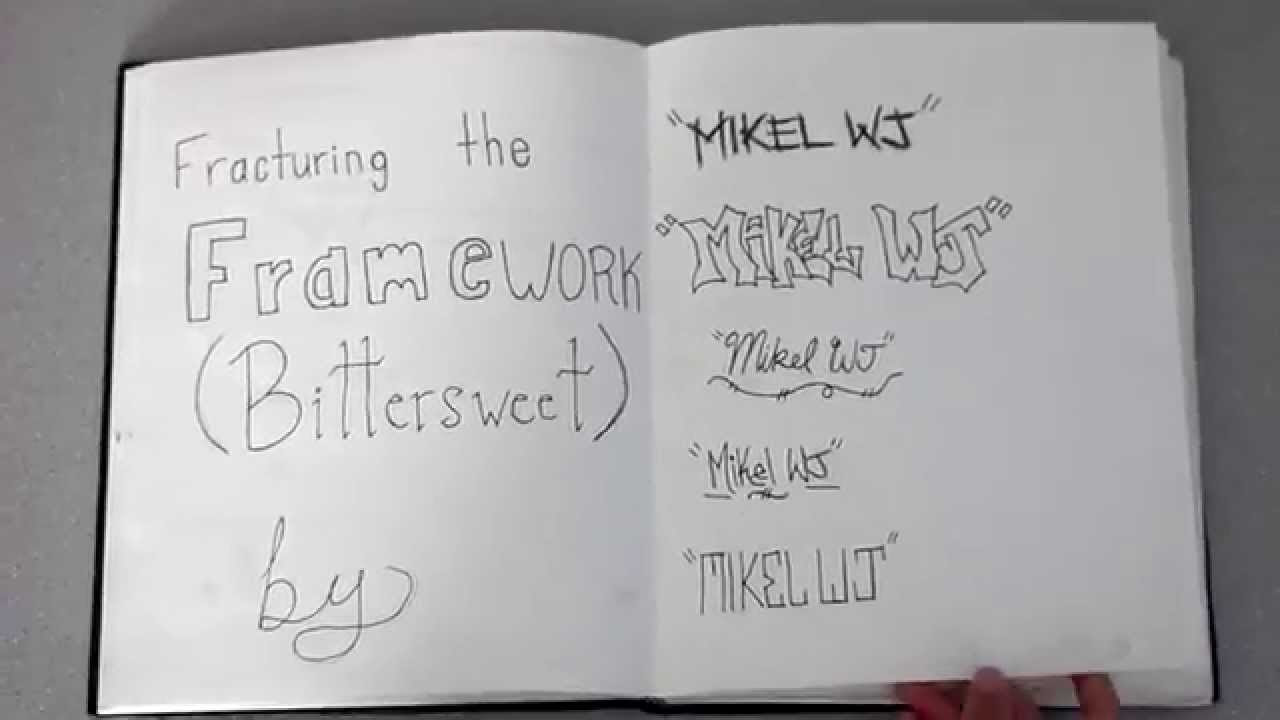 Fracturing the
FrameWORK
(Bittersweet)
by
"MIKEL WJ"
"MiKEL WJ"
"Mikel WJ"
"Mikel WJ"
"MIKEL WJ"